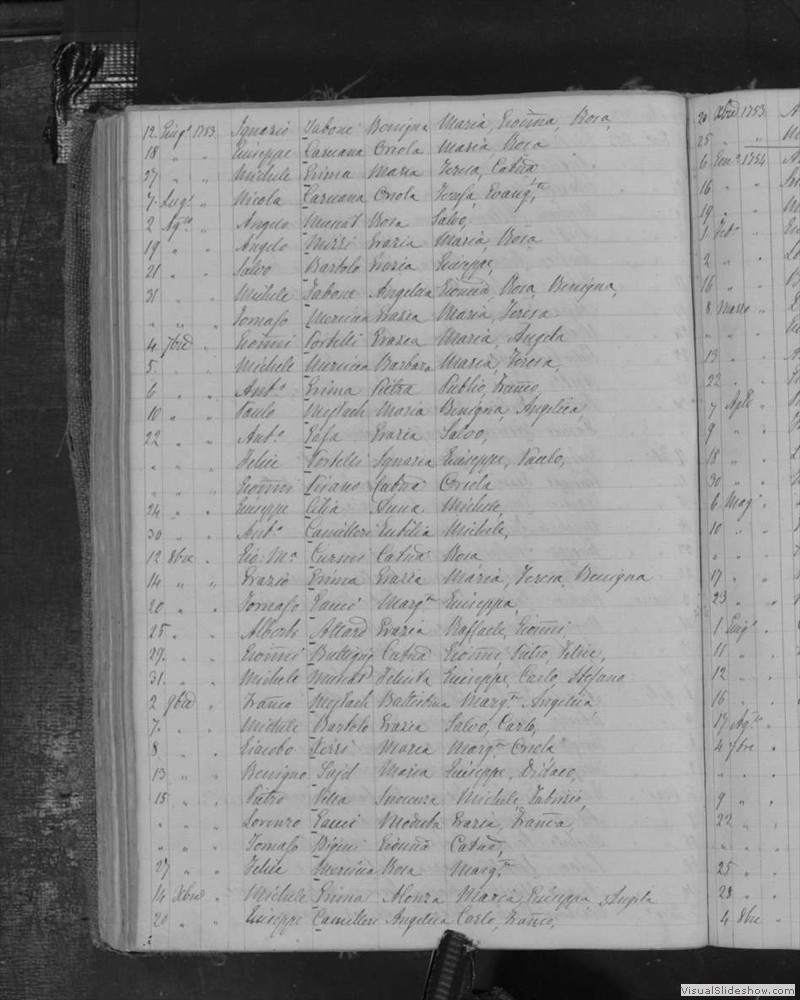 12 Giug.o 1753 Ignazio Tabone Benigna Maria, Gioñna, Rosa,
18 " " Giuseppe Caruana Oriola Maria Rosa
27 " " Michele Grima Maria Teresa, Catñа
7 Lug.o " Nicola Caruana Oriola Josefa, Evang.ta
2 Ag.to " Angelo Muscat Rosa Salvo,
19 " " Angelo Mizzi Grazia Maria, Rosa
21 " " Salvo Bartolo Grazia Giuseppe,
31 " " Michele Tabone Angelica Gioñna, Rosa, Benigna,
" " " Tomaso Mercieca Grazia Maria, Teresa
4 7bre " Gioñni Portelli Grazia Maria, Angela
5 " " Michele Mercieca Barbara Maria, Teresa,
6 " " Ant.o Grima Pietra Publio, Franco,
10 " " Paulo Mejlach Maria Benigna, Angelica,
22 " " Ant.o Grazia Salvo,
" " " Felice Portelli Ignazia Giuseppe, Paulo,
" " " Gioñni Pisano Catña Oriola
24 " " Giuseppe Cilia Anna Michele,
30 " " Ant.o Camilleri Eubilia Michele,
12 8bre " Gio: M.a Curmi Catña Rosa
14 " " Grazio Grima Grazia Maria, Teresa Benigna
20 " " Tomaso Gauci Marg.ta Giuseppa,
25 " " Alberto Attard Grazia Raffaele, Gioñni
27 " " Gioñni Buttigieg Catña Gioñni, Pietro, Felice,
31 " " Michele Muscat Felicita Giuseppe, Carlo, Stefano
2 9bre " Franco Mejlach Battistina Marg.ta Angelica
7 " " Michele Bartolo Grazia Salvo, Carlo,
8 " " Giacobo Maria Marg.ta Oriola
13 " " Benigno Sajd Maria Giuseppe, Didaco,
15 " " Pietro Vella Inocenza Michele, Fabrizio,
" " " Lorenzo Gauci Modesta Grazia, Franca,
" " " Tomaso Bigeni Gioñna Catña,
27 " " Felice Mercieca Rosa Marg.ta
14 Xbre " Michele Grima Alonza Maria, Giuseppa, Angela
20 " " Giuseppe Camilleri Angelica Carlo, Franco,
20 Xbre 1753
25 " "
6 Gen.o 1754
16 "
19 "
1 Feb.o "
2 "
16 "
8 Marzo "
" "
13 "
22 "
7 Aple "
9 "
18 "
30 "
6 Mag.o "
10 "
" "
17 "
23 "
1 Giug.o "
11 "
12 "
16 "
17 Ag.to "
4 7bre "
" "
9 "
22 "
" "
25 "
28 "
4 8bre "
VisualSlideshow.com